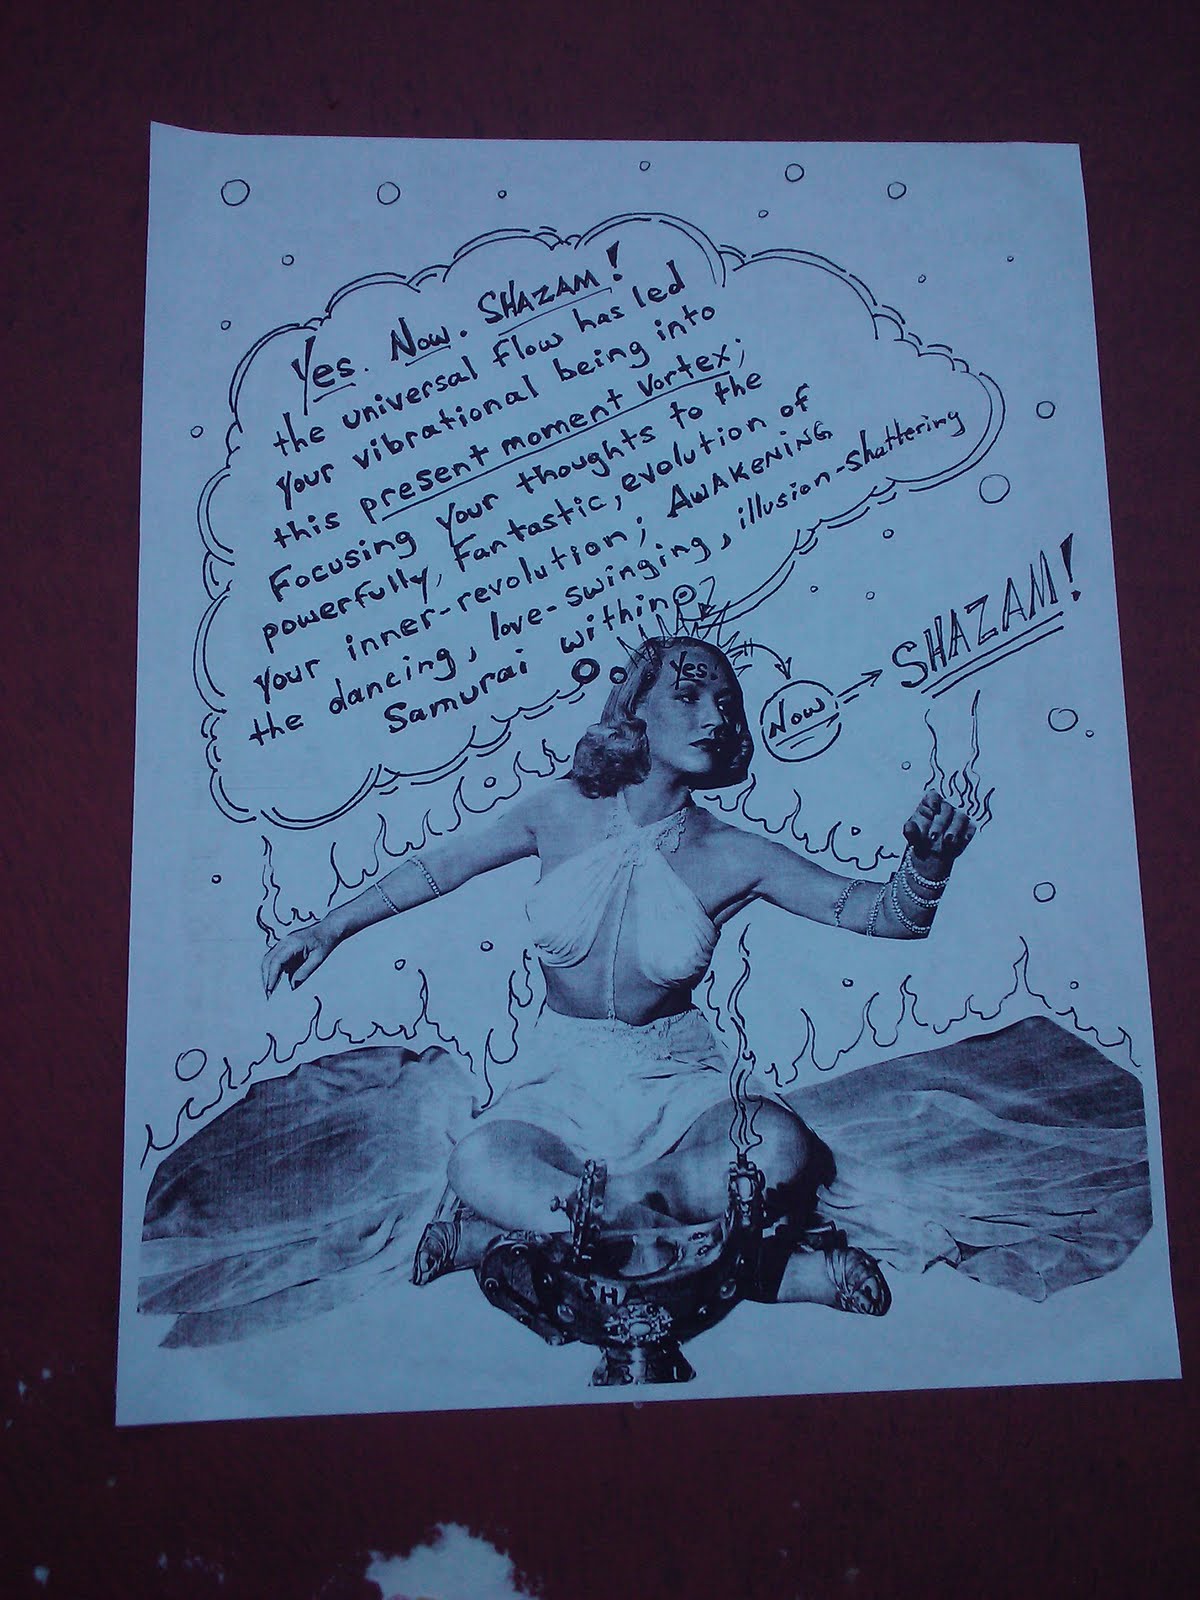 Yes. Now. SHAZAM!
the universal flow has led
your vibrational being into
this present moment Vortex;
Focusing your thoughts to the
powerfully, Fantastic, evolution of
your inner-revolution; AWAKENING
the dancing, love-swinging, illusion-shattering
Samurai within
Yes!
Now
SHAZAM!
SHA